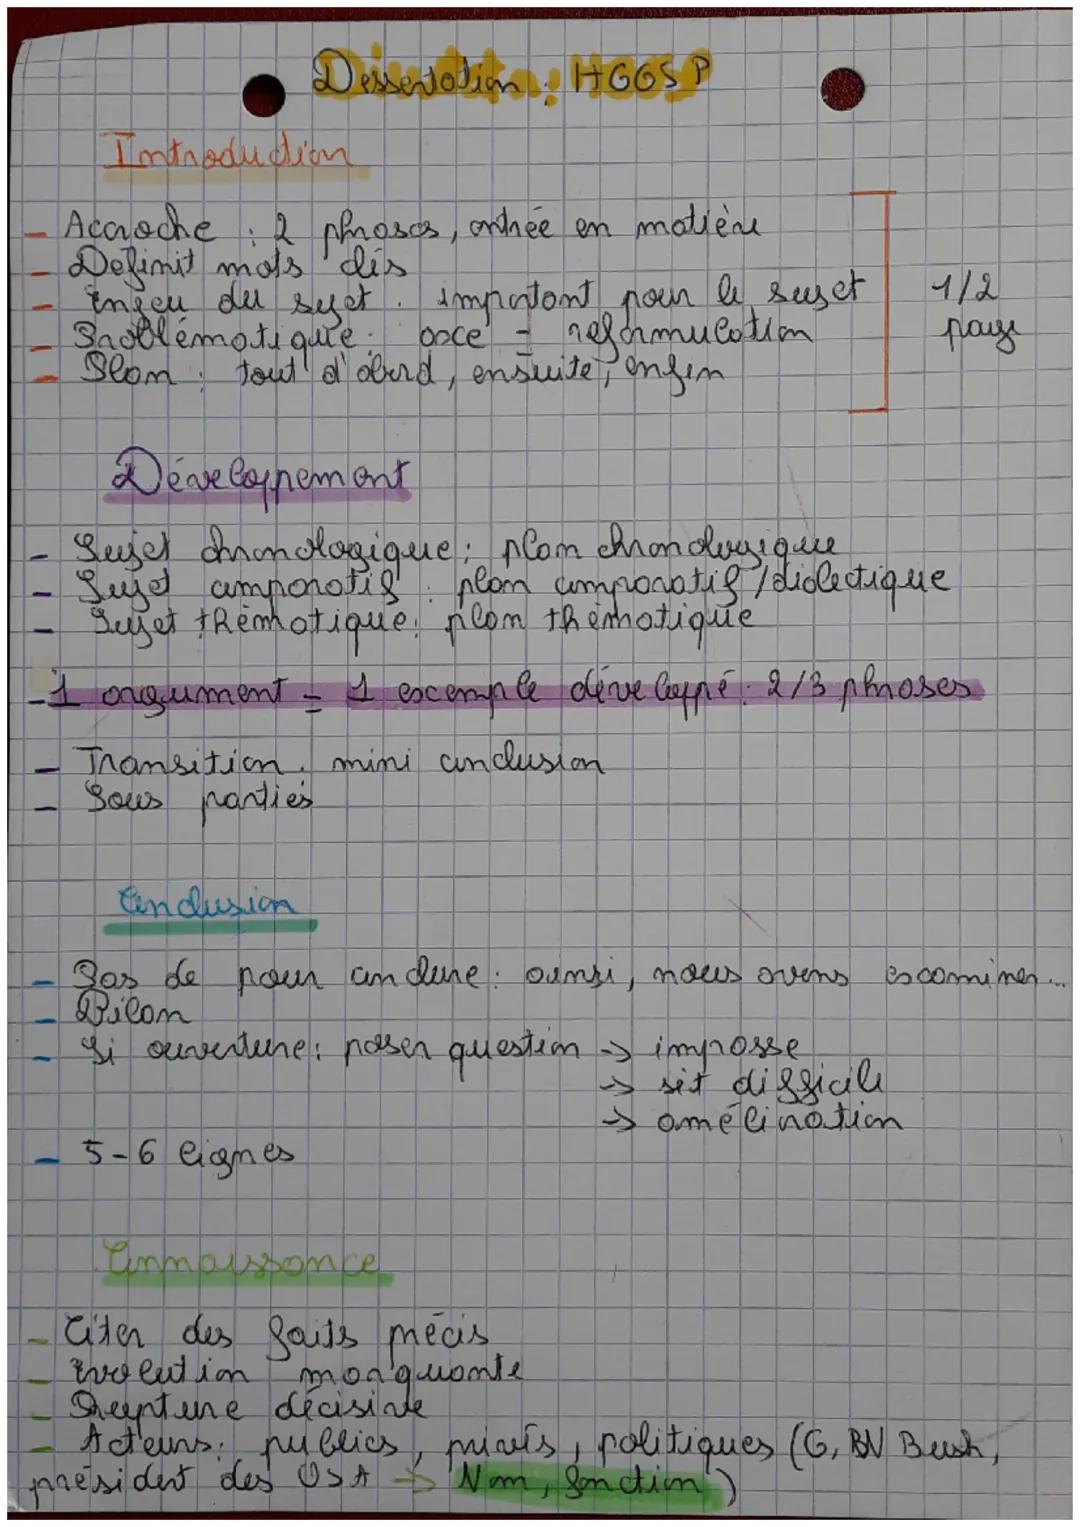 Dissertation : HGGSP
Introduction
- Accroche : 2 phrases, entrée en matière
- Définit mots clés
- Enjeu du sujet : important pour le sujet
- Problématique : axe - reformulation
- Plan : tout d'abord, ensuite, enfin
1/2 page
Développement
- Sujet chronologique : plan chronologique
- Sujet comparatif : plan comparatif / dialectique
- Sujet thématique : plan thématique
- 1 argument = 1 exemple développé : 2/3 phrases
- Transition : mini conclusion
- Sous parties
Conclusion
- Pas de pour conclure : ainsi, nous avons examiner...
- Bilan
- Si ouverture : poser question → impasse
→ sit difficile
→ amélioration
- 5-6 lignes
Connaissance
- Citer des faits précis
- Évolution marquante
- Rupture décisive
- Acteurs : publics, privés, politiques (G, BV Bush,
président des USA → Nom, fonction)